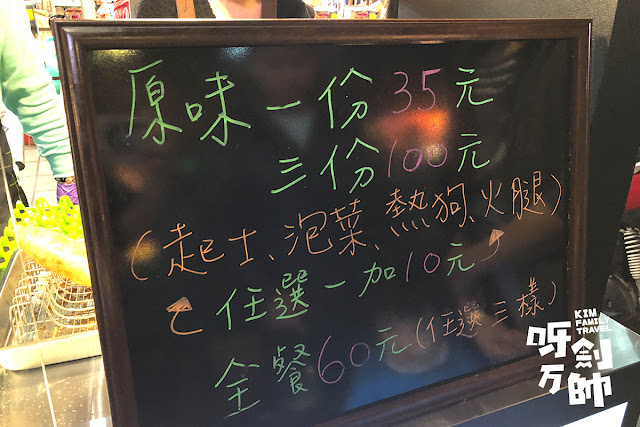 原味一份35元
三份100元
(起士、泡菜、熱狗、火腿)
任選一加10元
全餐60元(任選三樣)
KIM
FAMILY
TRAVEL
呀万創帥